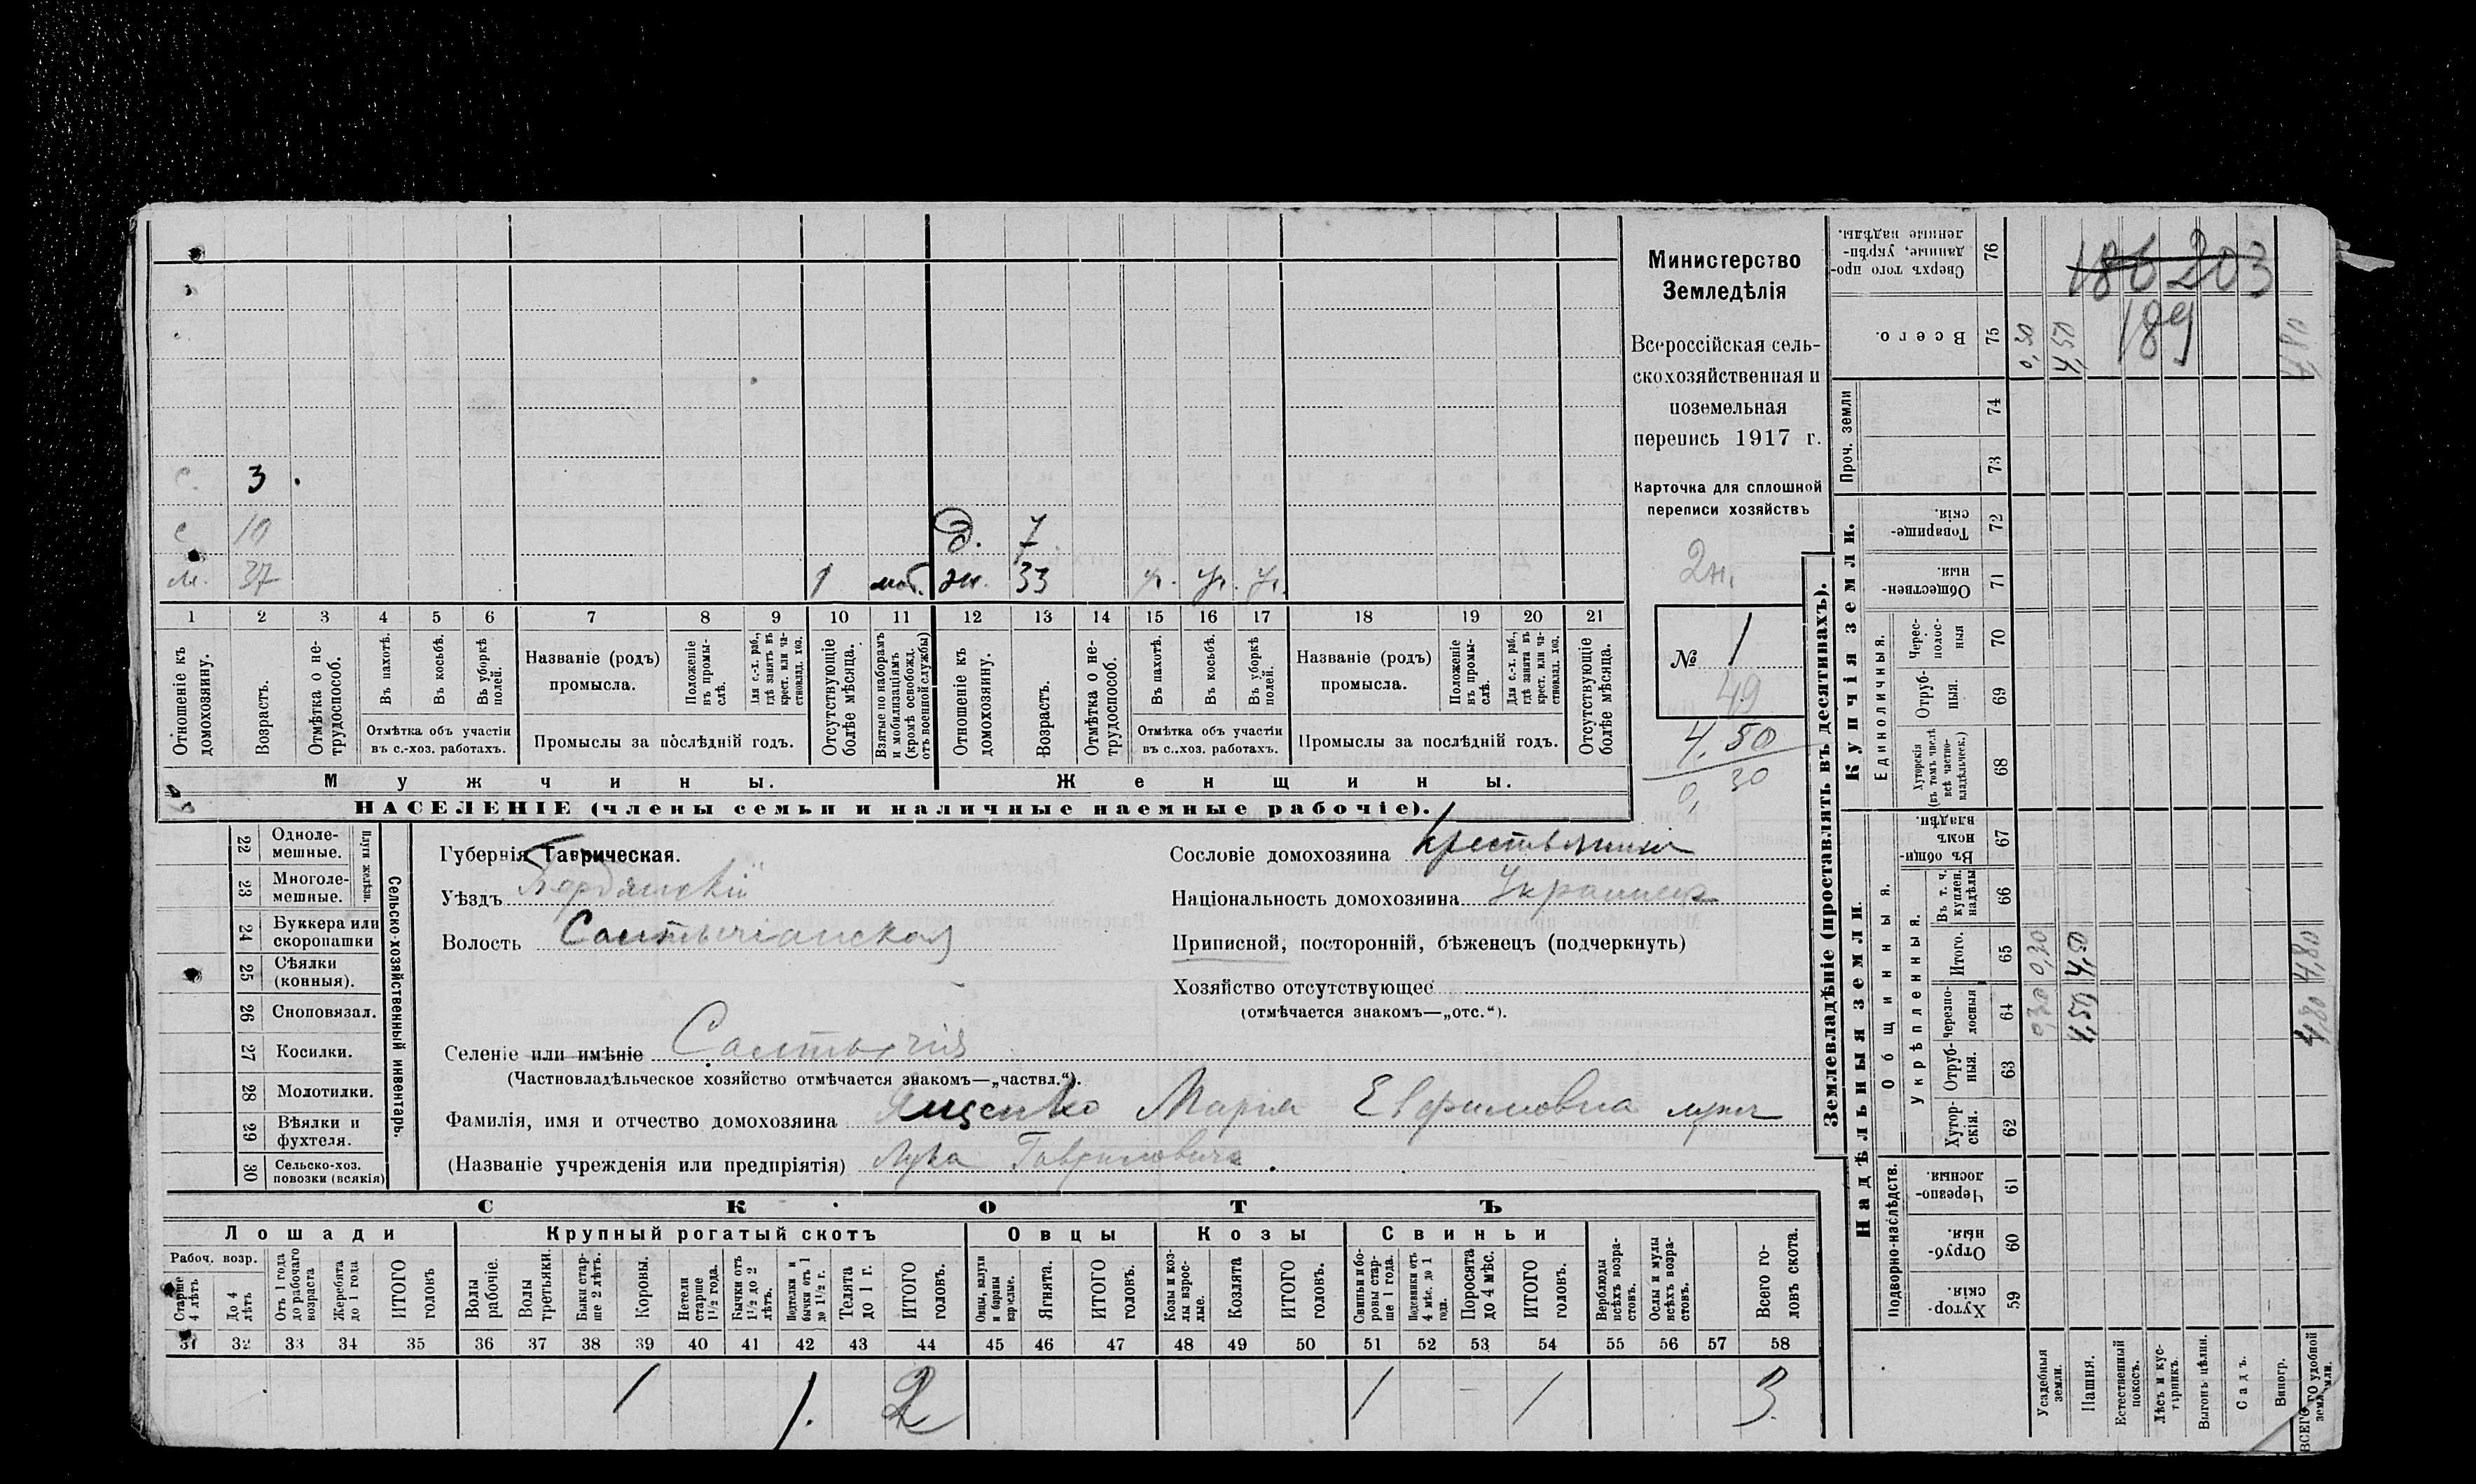 с. 3
с 10 д. 7
м. 37 1 моб. ж. 33 у. у. у.
1 2 3 4 5 6 7 8 9 10 11 12 13 14 15 16 17 18 19 20 21
Отношеніе къ домохозяину.
Возрастъ.
Отмѣтка о не-трудоспособ.
Въ пахотѣ.
Въ косьбѣ.
Въ уборкѣ полей.
Отмѣтка объ участіи
въ с.-хоз. работахъ.
Названіе (родъ)
промысла.
Положеніе въ промы-слѣ.
Для с.-х. раб., гдѣ занятъ въ крест. или ча-стновлад. хоз.
Промыслы за послѣдній годъ.
Отсутствующіе болѣе мѣсяца.
Взятые по наборамъ и мобилизаціямъ (кромѣ освобожд. отъ военной службы)
Отношеніе къ домохозяину.
Возрастъ.
Отмѣтка о не-трудоспособ.
Въ пахотѣ.
Въ косьбѣ.
Въ уборкѣ полей.
Отмѣтка объ участіи
въ с.-хоз. работахъ.
Названіе (родъ)
промысла.
Положеніе въ промы-слѣ.
Для с.-х. раб., гдѣ занята въ крест. или ча-стновлад. хоз.
Промыслы за послѣдній годъ.
Отсутствующіе болѣе мѣсяца.
Мужчины. Женщины.
НАСЕЛЕНІЕ (члены семьи и наличные наемные рабочіе).
Министерство
Земледѣлія
Всероссійская сель-
скохозяйственная и
поземельная
перепись 1917 г.
Карточка для сплошной
переписи хозяйствъ
2н.
№ 1
49
4,50
0,30
22 Одноле-
мешные.
23 Многоле-
мешные.
Плуги желѣзн.
24 Буккера или
скоропашки
25 Сѣялки
(конныя).
26 Сноповязал.
27 Косилки.
28 Молотилки.
29 Вѣялки и
фухтеля.
30 Сельско-хоз.
повозки (всякія)
Сельско-хозяйственный инвентарь.
Губернія Таврическая.
Уѣздъ Бердянскій
Волость Салтычіанская
Селеніе или имѣніе Салтычія
(Частновладѣльческое хозяйство отмѣчается знакомъ—„частвл.“).
Фамилія, имя и отчество домохозяина Ященко Марія Евфимовна муж
(Названіе учрежденія или предпріятія) Лука Гавриловичъ
Сословіе домохозяина Крестьянинъ
Національность домохозяина Украинец
Приписной, посторонній, бѣженецъ (подчеркнуть)
Хозяйство отсутствующее
(отмѣчается знакомъ—„отс.“).
СКОТЪ
Лошади Крупный рогатый скотъ Овцы Козы Свиньи
Рабоч. возр.
Старше 4 лѣтъ
До 4 лѣтъ
Отъ 1 года до рабочаго возраста
Жеребята до 1 года
ИТОГО головъ
Волы рабочіе.
Волы третьяки.
Быки стар-ше 2 лѣтъ.
Коровы.
Нетели старше 1½ года.
Бычки отъ 1½ до 2 лѣтъ.
Подтелки и бычки отъ 1 до 1½ г.
Телята до 1 г.
ИТОГО головъ.
Овцы, валухи и бараны взрослые.
Ягнята.
ИТОГО головъ.
Козы и коз-лы взрос-лые.
Козлята
ИТОГО головъ.
Свиньи и бо-ровы стар-ше 1 года.
Подсвинки отъ 4 мѣс. до 1 года.
Поросята до 4 мѣс.
ИТОГО головъ.
Верблюды всѣхъ возра-стовъ.
Ослы и мулы всѣхъ возра-стовъ.
Всего го-ловъ скота.
31 32 33 34 35 36 37 38 39 40 41 42 43 44 45 46 47 48 49 50 51 52 53 54 55 56 57 58
1 1. 2 1 – 1 3.
Землевладѣніе (проставлять въ десятинахъ).
Надѣльныя земли. Купчія земли. Проч. земли
Подворно-наслѣдств.
Общинныя.
Укрѣпленныя.
Единоличныя.
Хутор-скія. 59
Отруб-ныя. 60
Черезпо-лосныя. 61
Хутор-скія. 62
Отруб-ныя. 63
Черезпо-лосныя 64
Итого. 65
Въ т. ч. куплен. надѣлы 66
Въ общин-номъ владѣн. 67
Хуторскія (въ томъ числѣ всѣ частно-владѣльческ.) 68
Отруб-ныя. 69
Черес-полос-ныя 70
Обществен-ныя. 71
Товарище-скія. 72
73
74
Всего. 75
Сверхъ того про-данные, укрѣп-ленные надѣлы. 76
Усадебныя земли. 0,30 0,30 0,30
Пашня. 4,50 4,50 4,50
Естественный покосъ.
Лѣсъ и кус-тарникъ.
Выгонъ цѣлин.
Садъ.
Виногр.
ВСЕГО удобной земли. 4,80 4,80 4,80
186 203
189